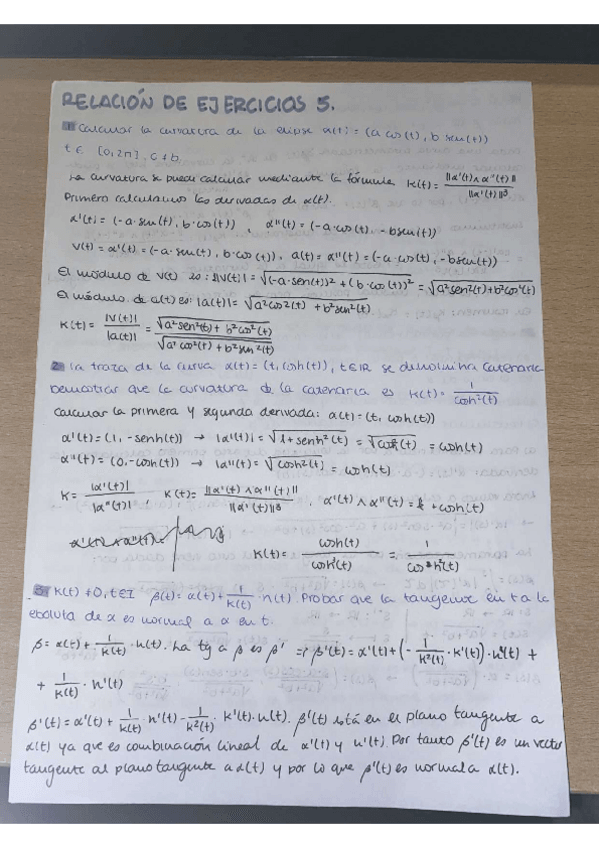 RELACIÓN DE EJERCICIOS 5.
1 Calcular la curvatura de la elipse α(t) = (a cos(t), b sen(t))
t ∈ [0,2π], c ≠ b
La curvatura se puede calcular mediante la fórmula K(t) = ||α'(t) ∧ α''(t)|| / ||α'(t)||³
Primero calculamos las derivadas de α(t).
α'(t) = (-a·sen(t), b·cos(t)), α''(t) = (-a·cos(t), -bsen(t))
V(t) = α'(t) = (-a·sen(t), b·cos(t)), a(t) = α''(t) = (-a·cos(t), -bsen(t))
El módulo de V(t) es: |V(t)| = √(-a·sen(t))² + (b·cos(t))² = √a²sen²(t)+b²cos²(t)
El módulo de a(t) es: |a(t)| = √a²cos²(t) + b²sen²(t)
K(t) = |V(t)| / |a(t)| = √a²sen²(t) + b²cos²(t) / √a²cos²(t) + b²sen²(t)
2. La traza de la curva α(t) = (t, cosh(t)), t∈IR se denomina catenaria
Demostrar que la curvatura de la catenaria es K(t) = 1 / cosh²(t)
Calcular la primera y segunda derivada: α(t) = (t, cosh(t))
α'(t) = (1, -senh(t)) → |α'(t)| = √1 + senh²(t) = √cosh²(t) = cosh(t)
α''(t) = (0, -cosh(t)) → |α''(t)| = √cosh²(t) = cosh(t)
K = |α'(t)| / |α''(t)|, K(t) = ||α'(t) ∧ α''(t)|| / ||α'(t)||³. α'(t) ∧ α''(t) = cosh(t)
K(t) = cosh(t) / cosh³(t) = 1 / cosh²(t)
3. K(t) ≠ 0, t∈I β(t) = α(t) + 1/K(t) · n(t). Probar que la tangente en t a la
evoluta de α es normal a α en t.
β = α(t) + 1/K(t) · n(t). La tg a β es β' => β'(t) = α'(t) + (- 1/K²(t) · K'(t)) · n(t) +
+ 1/K(t) · n'(t)
β'(t) = α'(t) + 1/K(t) · n'(t) - 1/K²(t) · K'(t)·n(t). β'(t) está en el plano tangente a
α(t) ya que es combinación lineal de α'(t) y n'(t). Por tanto β'(t) es un vector
tangente al plano tangente a α(t) y por lo que β'(t) es normal a α(t).